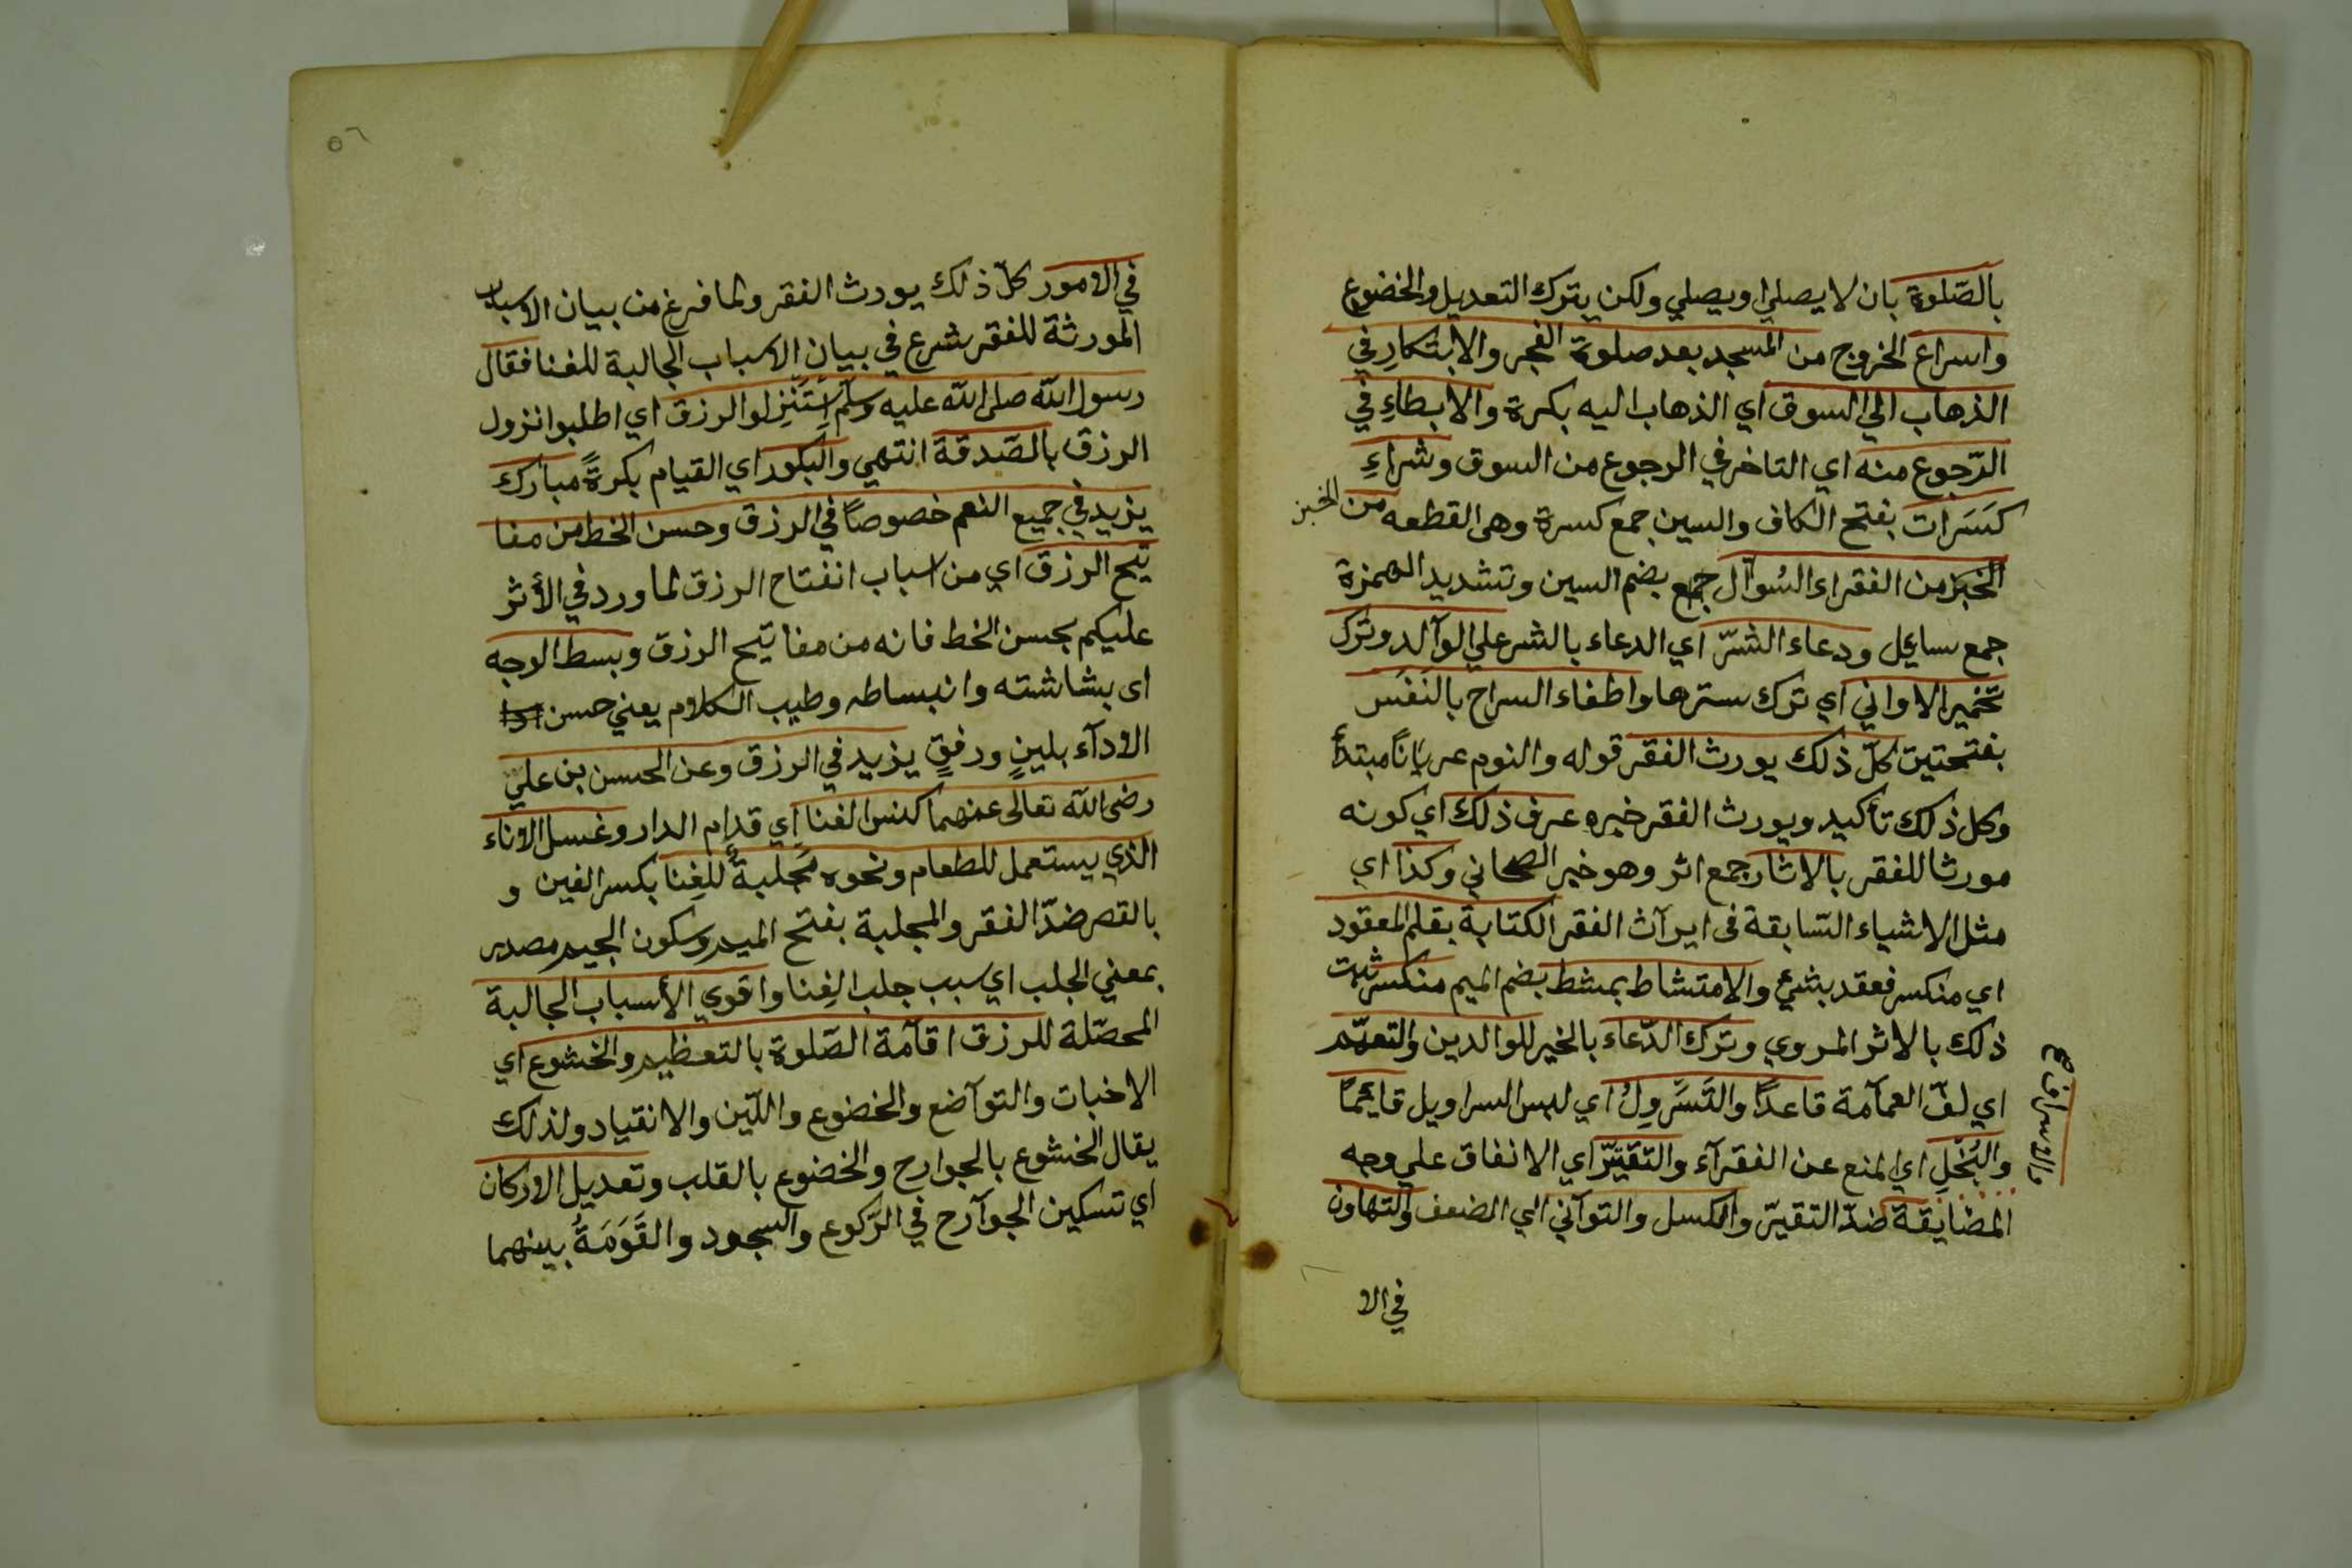 بالصّلوة بان لا يصلي او يصلي ولكن يترك التعديل والخضوع
واسراع الخروج من المسجد بعد صلوة الفجر والابتكارِ في
الذهاب الي السوق اي الذهاب اليه بكرة والابطاءِ في
الرّجوع منه اي التاخر في الرجوع من السوق وشراءِ
كسَرَات بفتح الكاف والسين جمع كسرة وهي القطعه من الخبز
الخبز من الفقراء السُوآل جمع بضم السين وتشديد الهمزة
جمع سائل ودعاء الشرّ اي الدعاء بالشر علي الوآلد وترك
تخمير الاواني اي ترك سترها واطفاء السراج بالنَفَس
بفتحتين كلّ ذلك يورث الفقر قوله والنوم عرياناً مبتدأ
وكل ذلك تأكيد ويورث الفقر خبره عرف ذلك اي كونه
مورثا للفقر بالاثار جمع اثر وهو خبر الصحاني وكذا اي
مثل الاشياء السّابقة في ايرآث الفقر الكتابة بقلم المعقود
اي منكسر فعقد بشيء والامتشاط بمشط بضم الميم منكسر ثبت
ذلك بالاثر المروي وترك الدّعاء بالخير للوالدين والتعمّم
اي لفّ العمآمة قاعداً والتَسَّروِلُ اي لبس السراويل قائماً
والبُخلِ اي المنع عن الفقرآء والتقتيّر اي الانفاق علي وجه
المضايقة ضدّ التقيرّ والكسل والتوآني اي الضعف والتهاون
والاسراف
في الا
٥٦
في الامور كلّ ذلك يورث الفقر ولما فرغ من بيان الاسباب
المورثة للفقر شرع في بيان الاسباب الجالبة للغنا فقال
رسول الله صلى الله عليه وسلّم اِستَنْزِلوا الرزق اي اطلبوا نزول
الرزق بالصّدقة انتهي والبكور اي القيام بكرةً مبارك
يزيد في جميع النعم خصوصاً في الرزق وحسن الخط من مفا
تيح الرزق اي من اسباب انفتاح الرزق لما ورد في الأثر
عليكم بحسن الخط فانه من مفاتيح الرزق وبسط الوجه
اى بشاشته وانبساطه وطيب الكلام يعني حسن
الادآء بلينٍ ورفقٍ يزيد في الرزق وعن الحسن بن علي
رضي الله تعالى عنهما كنس الفنا اي قدام الدار وغسل الاناء
الذي يستعمل للطعام ونحوه مَجلبةٌ للغِنا بكسر الغين و
بالقصر ضدّ الفقر والمجلبة بفتح الميم وسكون الجيم مصدر
بمعني الجلب اي سبب جلب الغِنا واقوي الأسباب الجالبة
المحصّلة للرزق اقآمة الصّلوة بالتعظيم والخشوع اي
الاخبات والتوآضع والخضوع واللّين والانقياد ولذلك
يقال الخشوع بالجوارح والخضوع بالقلب وتعديل الاركان
اي تسكين الجوآرح في الرّكوع والسجود والقَوَمَةُ بينهما